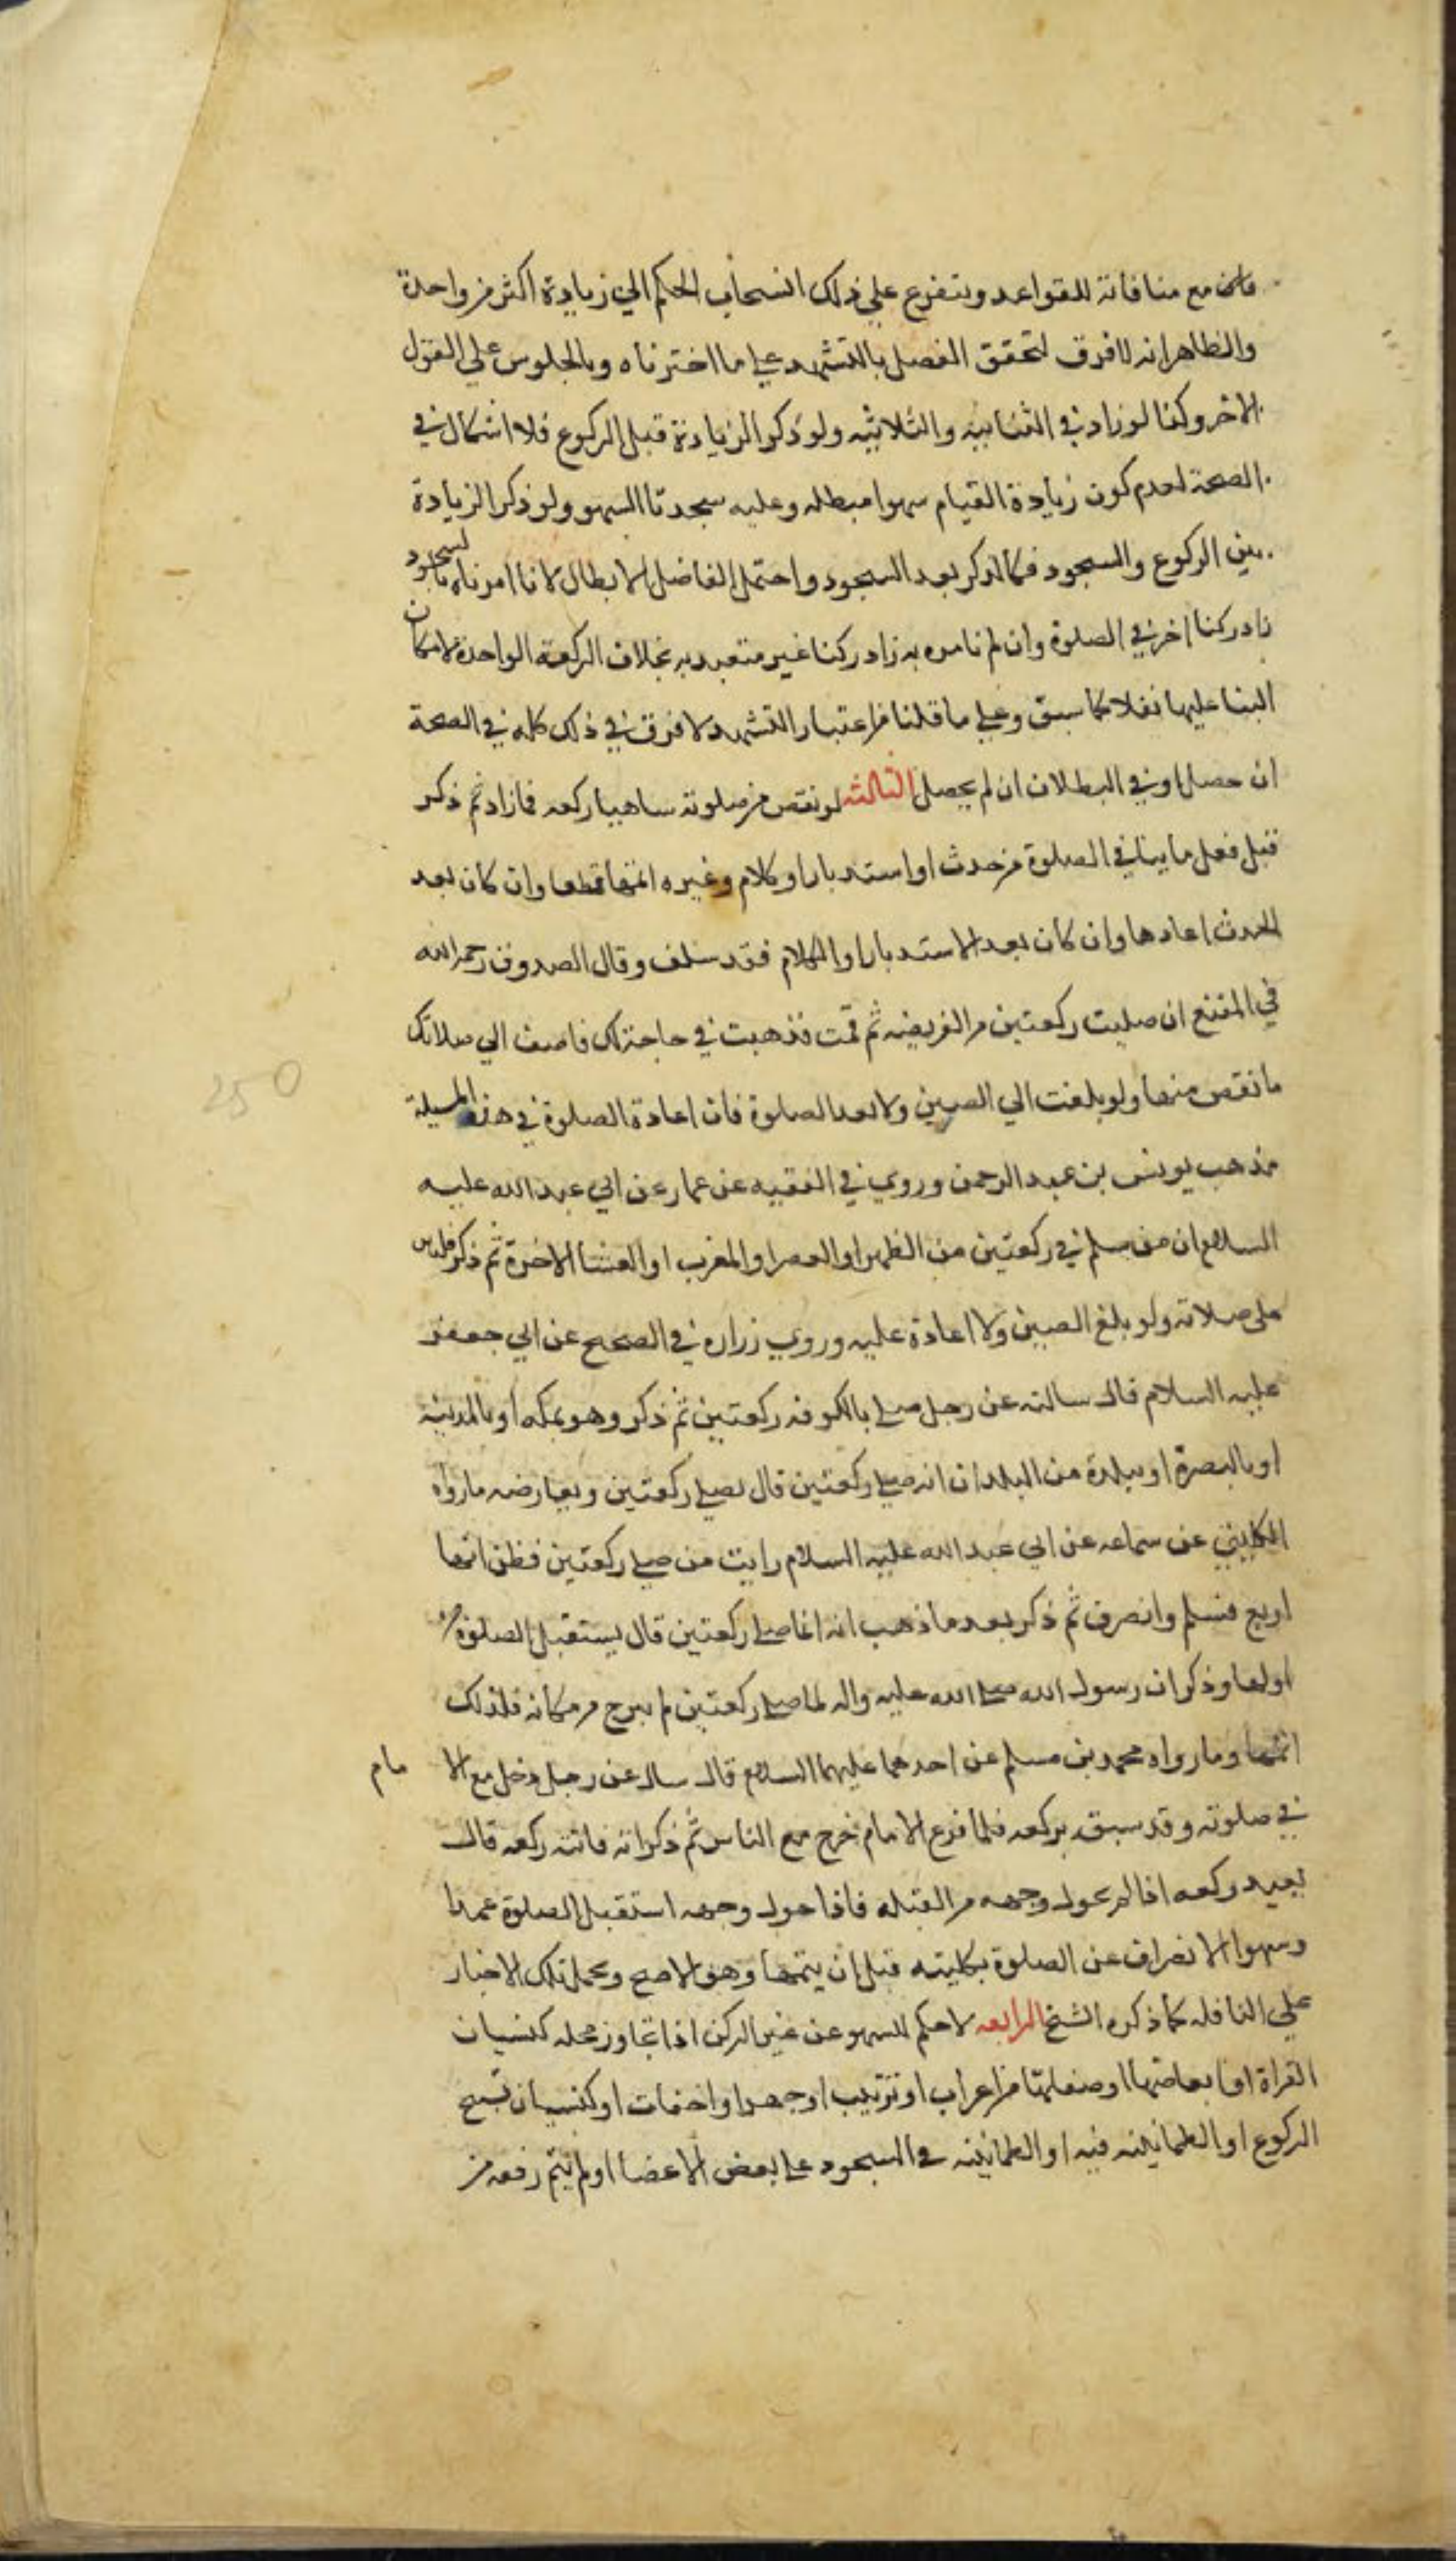 مع منافاته للقواعد ويتفرع علي ذلك انسحاب الحكم الي زيادة اكثر من واحدة
والظاهر انه لا فرق لتحقق الفصل بالتشهد علي ما اخترناه وبالجلوس علي القول
الاخر وكذا لو زاد في الثنائيه والثلاثيه ولو ذكر الزيادة قبل الركوع فلا اشكال في
الصحة لعدم كون زيادة القيام سهوا مبطله وعليه سجدتا السهو ولو ذكر الزيادة
بين الركوع والسجود فكالذكر بعد السجود واحتمل الفاضل الابطال لانا ان امرناه بالسجود
زاد ركنا اخر في الصلوة وان لم نامره به زاد ركنا غير متعبد به بخلاف الركعة الواحدة لامكان
البنا عليها نفلا كما سبق وعلي ما قلنا من اعتبار التشهد لا فرق في ذلك كله في الصحة
ان حصل او في البطلان ان لم يحصل الثالثه لو نقص من صلوته ساهيا ركعه فما زاد ثم ذكر
قبل فعل ما ينافي الصلوة من حدث او استدبار او كلام وغيره اتمها قطعا وان كان بعد
الحدث اعادها وان كان بعد الاستدبار او الكلام فقد سلف وقال الصدوق رحمه الله
في المقنع ان صليت ركعتين من الفريضه ثم قمت فذهبت في حاجة لك فاضف الي صلاتك
ما نقص منها ولو بلغت الي الصين ولا تعد الصلوة فان اعادة الصلوة في هذه المسيلة
مذهب يونس بن عبد الرحمن وروي في الفقيه عن عمار عن ابي عبد الله عليه
السلام ان من سلم في ركعتين من الظهر او العصر او المغرب او العشا الاخرة ثم ذكر فليبن
علي صلاته ولو بلغ الصين ولا اعادة عليه وروي زراره في الصحيح عن ابي جعفر
عليه السلام قال سالته عن رجل صلي بالكوفه ركعتين ثم ذكر وهو بمكه او بالمدينه
او بالبصرة او ببلدة من البلدان انه صلي ركعتين قال يصلي ركعتين ويعارضه ما رواه
الكليني عن سماعه عن ابي عبد الله عليه السلام رايت من صلي ركعتين فظن انها
اربع فسلم وانصرف ثم ذكر بعد ما ذهب انه انما صلي ركعتين قال يستقبل الصلوة من
اولها وذكر ان رسول الله صلي الله عليه واله لما صلي ركعتين لم يبرح من مكانه فلذلك
اتمها وما رواه محمد بن مسلم عن احدهما عليهما السلام قال سال عن رجل دخل مع الامام
في صلوته وقد سبقه بركعه فلما فرغ الامام خرج مع الناس ثم ذكر انه فاتته ركعه قال
يعيد ركعه اذا لم يحول وجهه من القبله فاذا حول وجهه استقبل الصلوة عمدا
وسهوا الانصراف عن الصلوة بكليته قبل ان يتمها وهو الاصح ويحمل تلك الاخبار
علي النافله كما ذكره الشيخ الرابعه لا حكم للسهو عن غير الركن اذا تجاوز محله كنسيان
القراة او ابعاضها او صفاتها من اعراب او ترتيب او جهر او اخفات او كنسيان تسبيح
الركوع او الطمانينه فيه او الطمانينه في السجود علي بعض الاعضا او لم يتم رفعه من